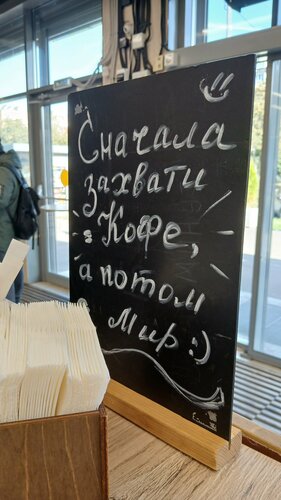 Сначала
захвати
Кофе,
а потом
Мир :)